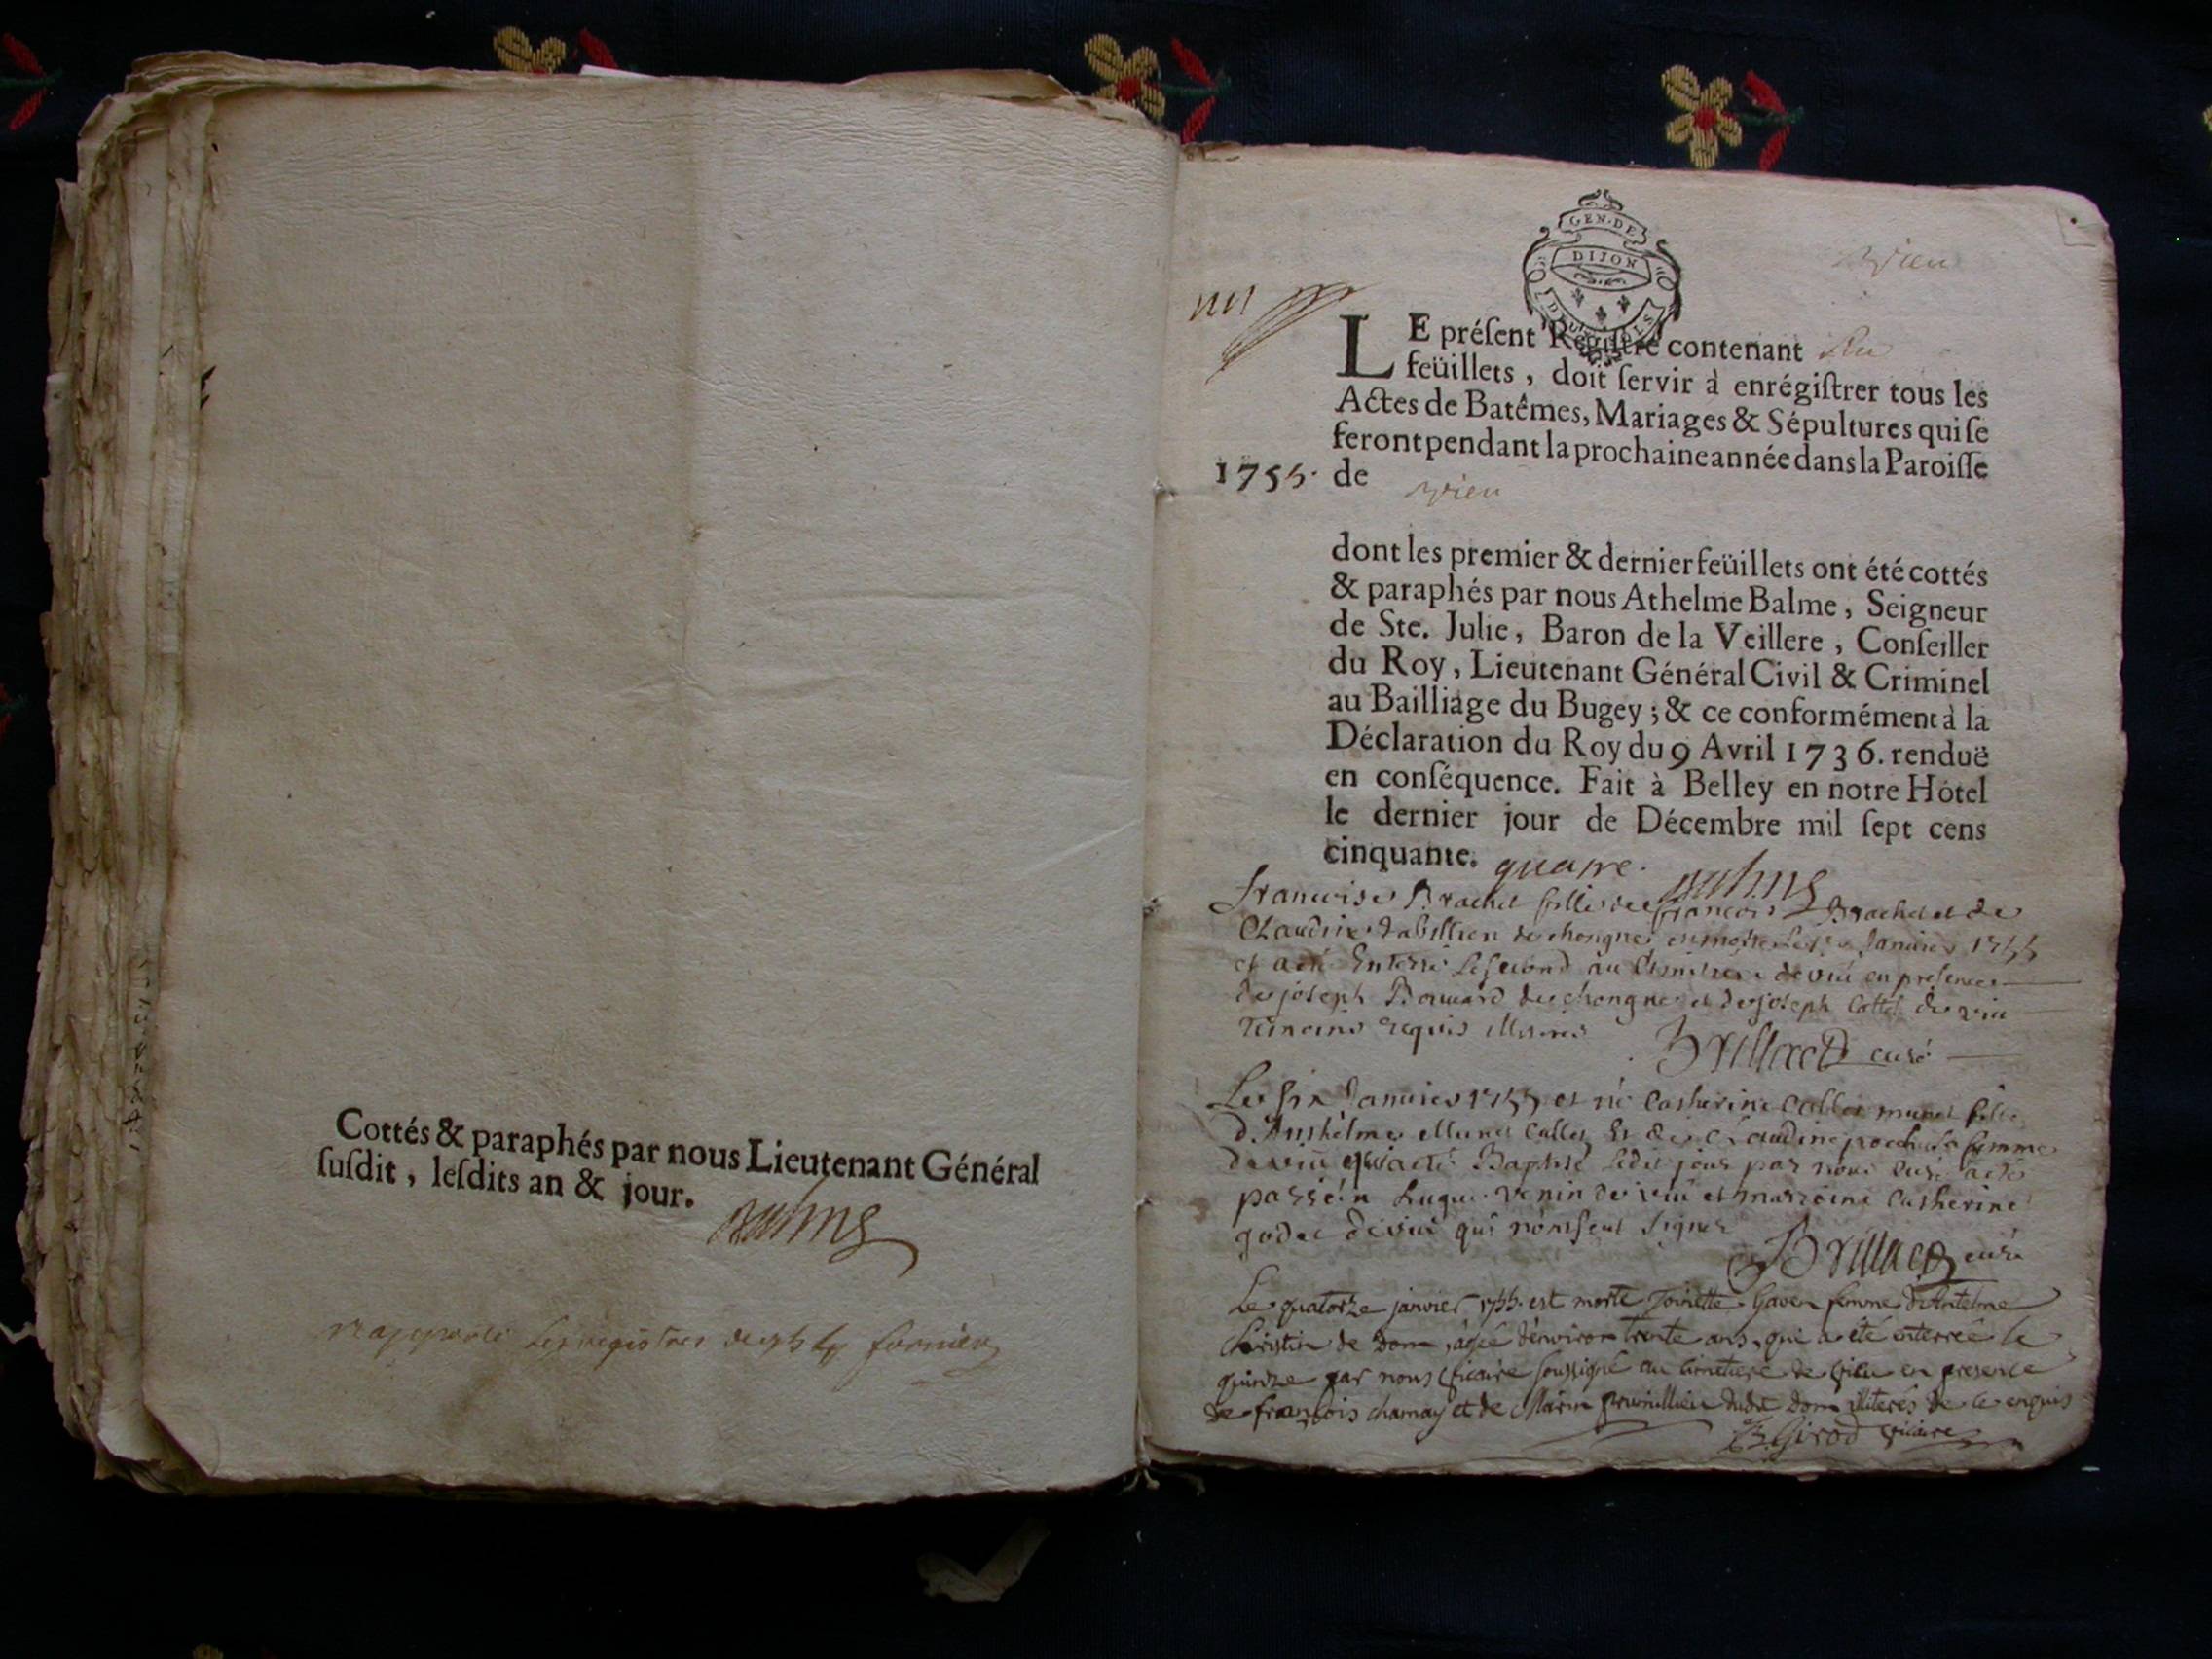 Cottés & paraphés par nous Lieutenant Général
ſuſdit, leſdits an & jour.
GEN. DE
DIJON
vieu
LE préſent Regiſtre contenant
feüillets, doit ſervir à enrégiſtrer tous les
Actes de Batêmes, Mariages & Sépultures qui ſe
feront pendant la prochaine année dans la Paroiſſe
1755. de vieu
dont les premier & dernier feüillets ont été cottés
& paraphés par nous Athelme Balme, Seigneur
de Ste. Julie, Baron de la Veillere, Conſeiller
du Roy, Lieutenant Général Civil & Criminel
au Bailliage du Bugey; & ce conformément à la
Déclaration du Roy du 9 Avril 1736. renduë
en conſéquence. Fait à Belley en notre Hôtel
le dernier jour de Décembre mil ſept cens
cinquante. quatre.
francoise Brachet fille de francois Brachet et de
Claudine de chongnes est morte le Janvier 1755
et a été Enterré le second au Cimitiere de viu en presence
de joseph de chongnes et de joseph Cottet de viu
temoins requis illiteres
Brillat curé
Le six Janvier 1755 est né Catherine Callet munet fille
d'Anthelme Munet Callet Et de Claudine femme
de viu qui a été Baptisé ledit jour par nous Curé a été
passein de viu et marreine Catherine
godet de viu qui n'ont seu signer
Brillat curé
Le quatorze janvier 1755. est morte femme d'Antelme
Christin de Dom, agée d'environ trente ans, qui a été enterrée le
quinze par nous vicaire soussigné au cimetiere de vieu en presence
de françois charnay et de Marin dudit Dom illiterés de ce enquis
Girod vicaire